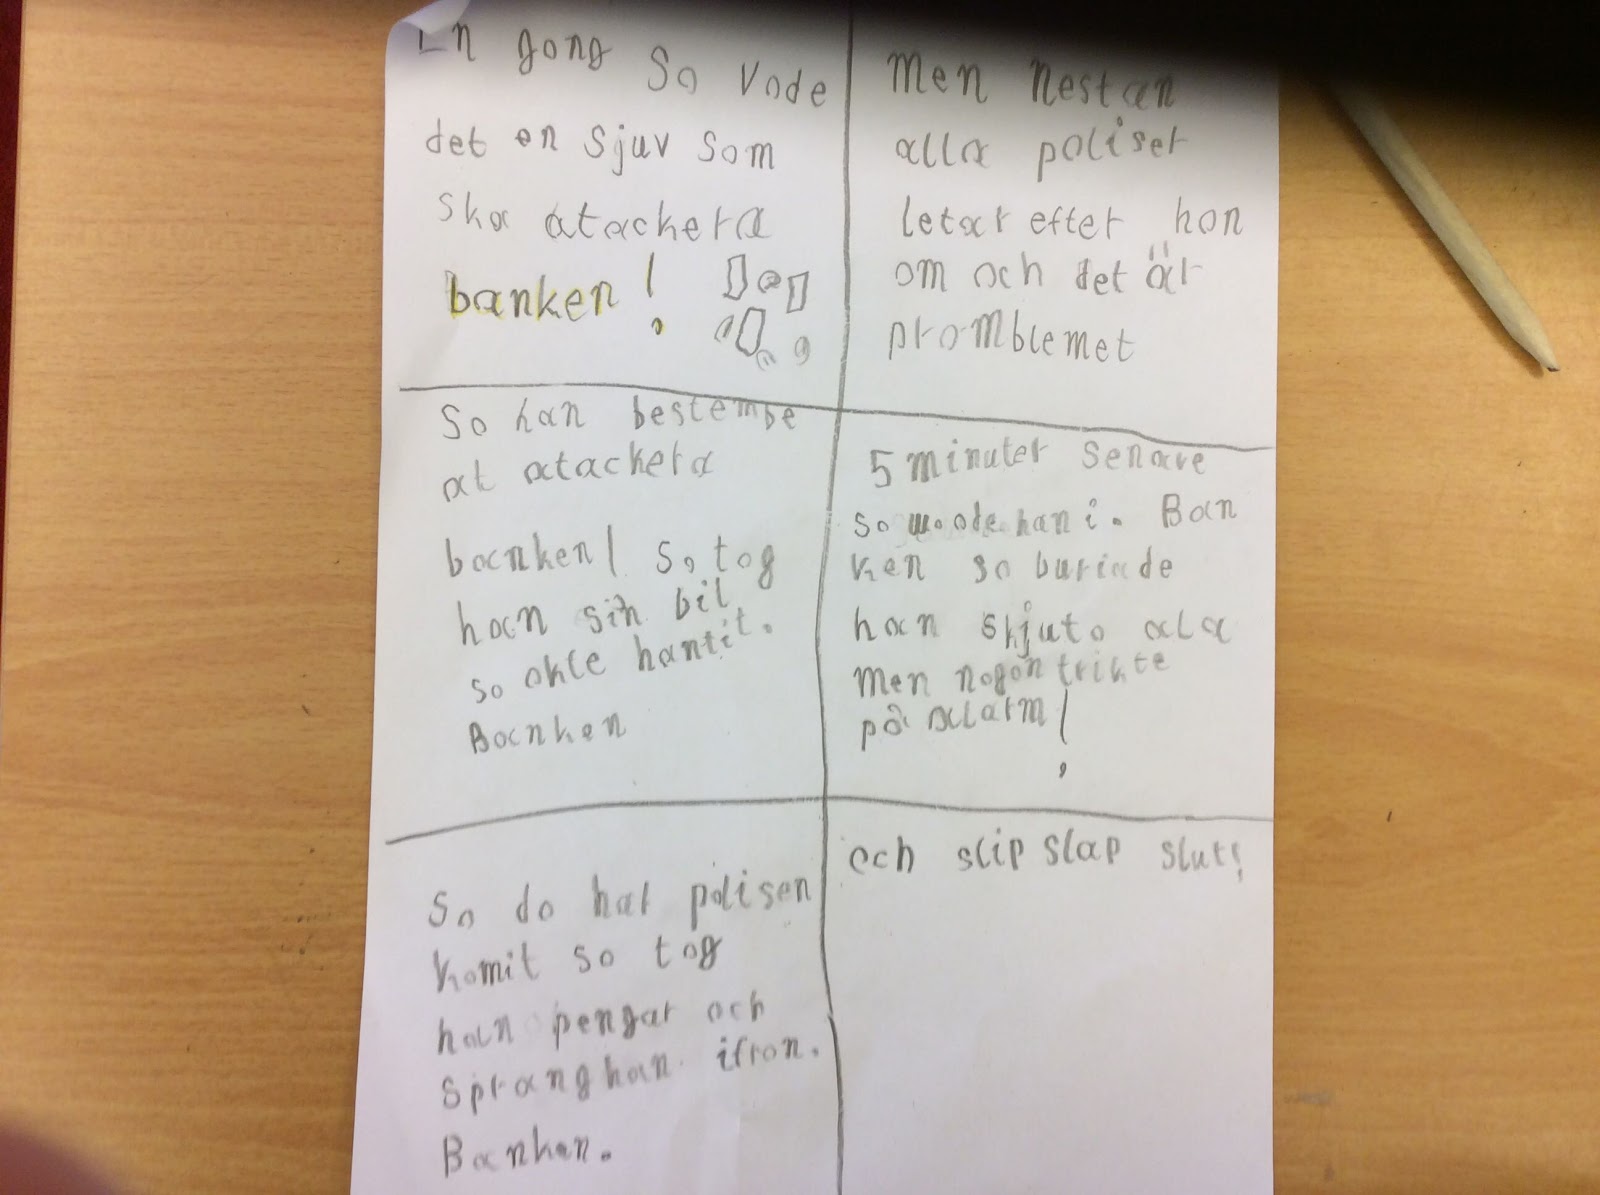 En gong so vode
det en sjuv som
ska atackera
banken!
men nestan
alla poliser
letar efter hon
om och det är
promblemet
So han bestembe
at atackera
banken! so tog
han sin bil
so okte hantit.
Banken
5 minuter senare
so wode han i. Ban
ken so buriade
han skjuta ala
men nogon trikte
på alarm!
So do har polisen
komit so tog
han pengar och
sprang han ifron.
Banken.
och slip slap slut!